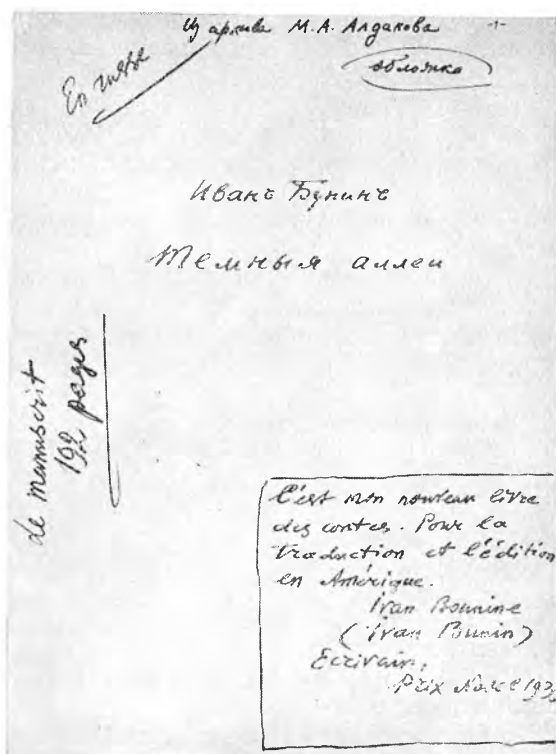 Из архива М.А. Алданова
обложка
Иванъ Бунинъ
Темныя аллеи
de manuscrit
192 pages
C'est mon nouveau livre
des contes. Pour la
traduction et l'édition
en Amérique.
Ivan Bounine
(Ivan Bunin)
Ecrivain,
Prix Nobel 193